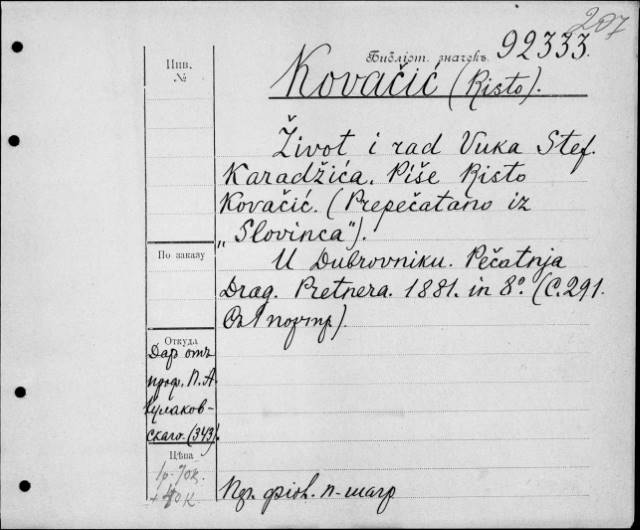 207
Библіот. значекъ 92333.
Инв.
№
Kovačić (Risto).
Život i rad Vuka Stef.
Karadžića. Piše Risto
Kovačić. (Prepečatano iz
„Slovinca").
По заказу
U Dubrovniku. Pečatnja
Drag. Pretnera. 1881. in 8º. (С. 291.
Съ 1 портр.).
Откуда
Даръ отъ
проф. П. А.
Кулаков-
скаго. (343).
Цѣна
1р. 70к.
+ 40к.